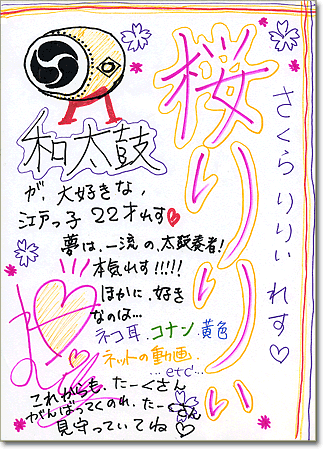 桜りりぃ
さくら りりぃ れす♡
和太鼓
が、大好きな、
江戸っ子 22才れす♥
夢は、一流の、太鼓奏者!
本気れす!!!!!
ほかに、好き
なのは…
ネコ耳、コナン、黄色
ネットの動画、
…etc…
これからも、たーくさん
がんばってくのれ、たーくさん
見守っていてね♡